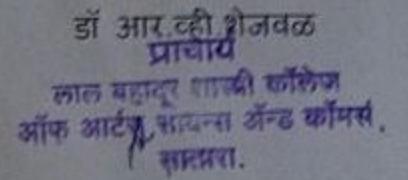 डॉ आर.व्ही शेजवळ
प्राचार्य
लाल बहादूर शास्त्री कॉलेज
ऑफ आर्टस्, सायन्स ॲन्ड कॉमर्स,
सातारा.